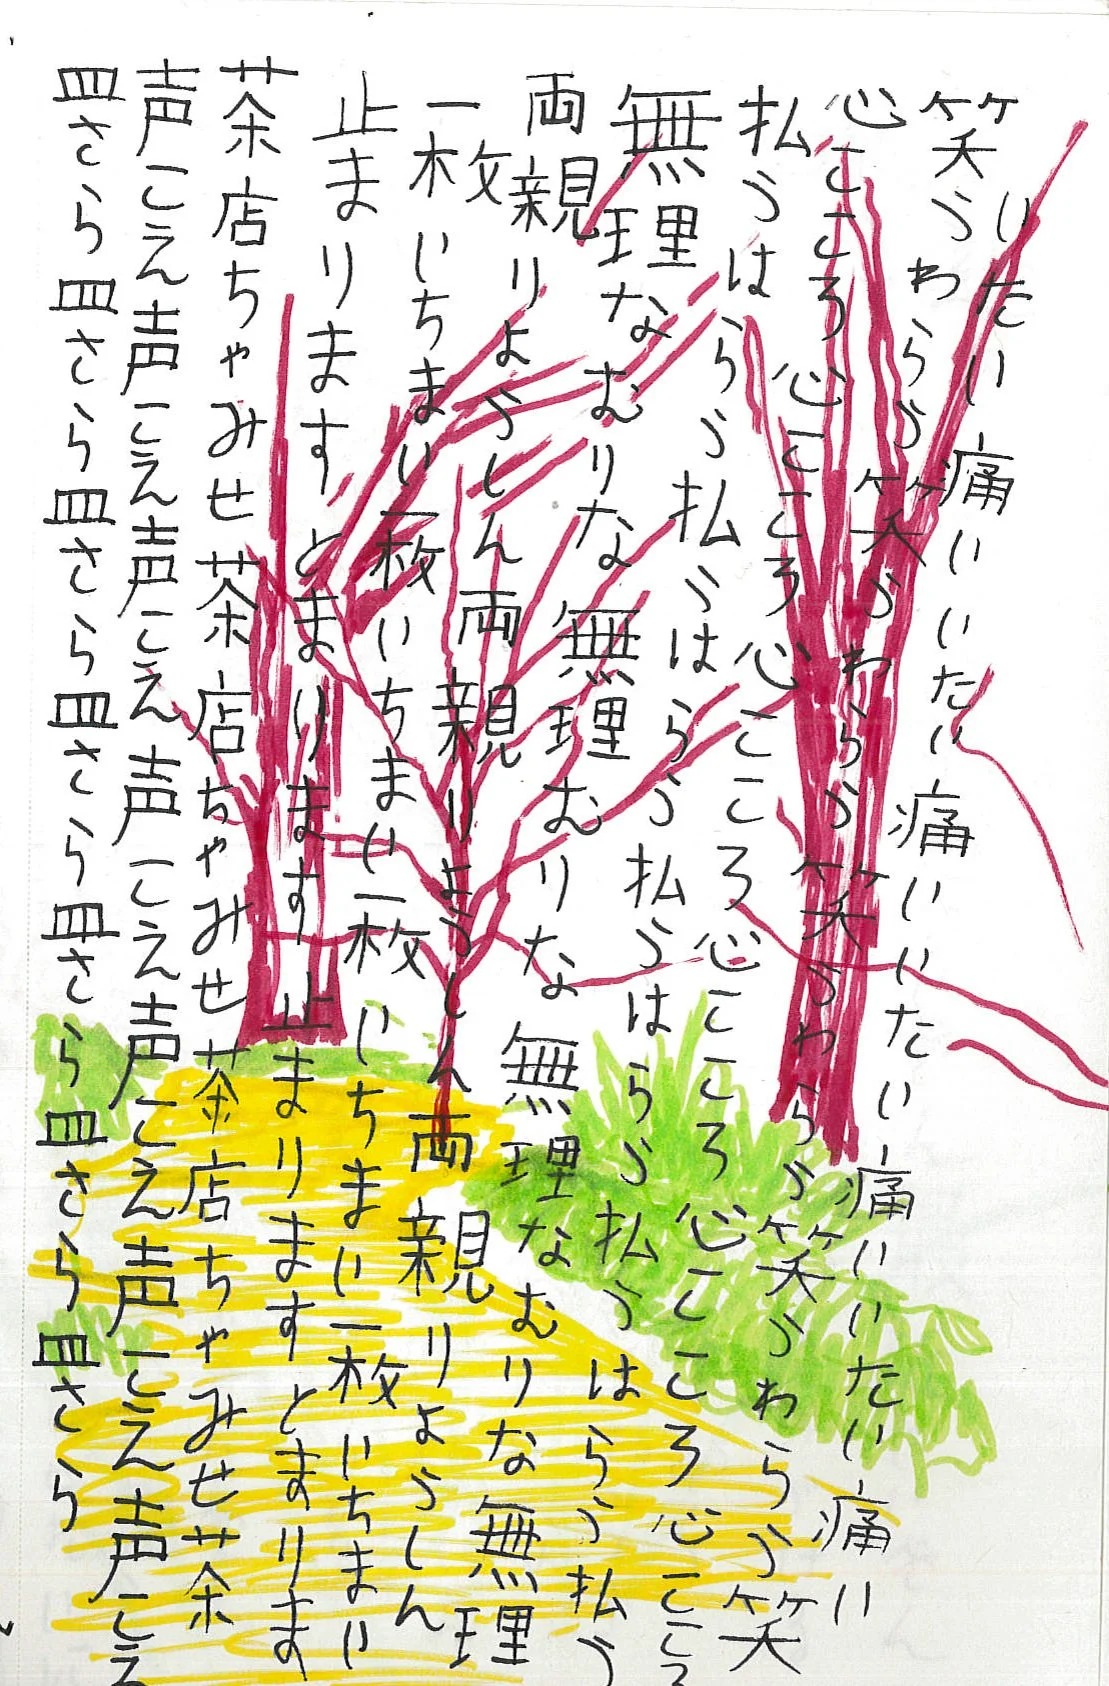 いたい痛いいたい痛いいたい痛いいたい痛い
笑うわらう笑うわらう笑うわらう笑うわらう笑
心こころ心こころ心こころ心こころ心こころ心こころ
払うはらう払うはらう払うはらう払うはらう払う
無理なむりな無理なむりな無理なむりな無理
両親りょうしん両親りょうしん両親りょうしん
一枚いちまい一枚いちまい一枚いちまい一枚いちまい
止まりますとまります止まりますとまりま
茶店ちゃみせ茶店ちゃみせ茶店ちゃみせ茶
声こえ声こえ声こえ声こえ声こえ声こえ声こえ
皿さら皿さら皿さら皿さら皿さら皿さら皿さら